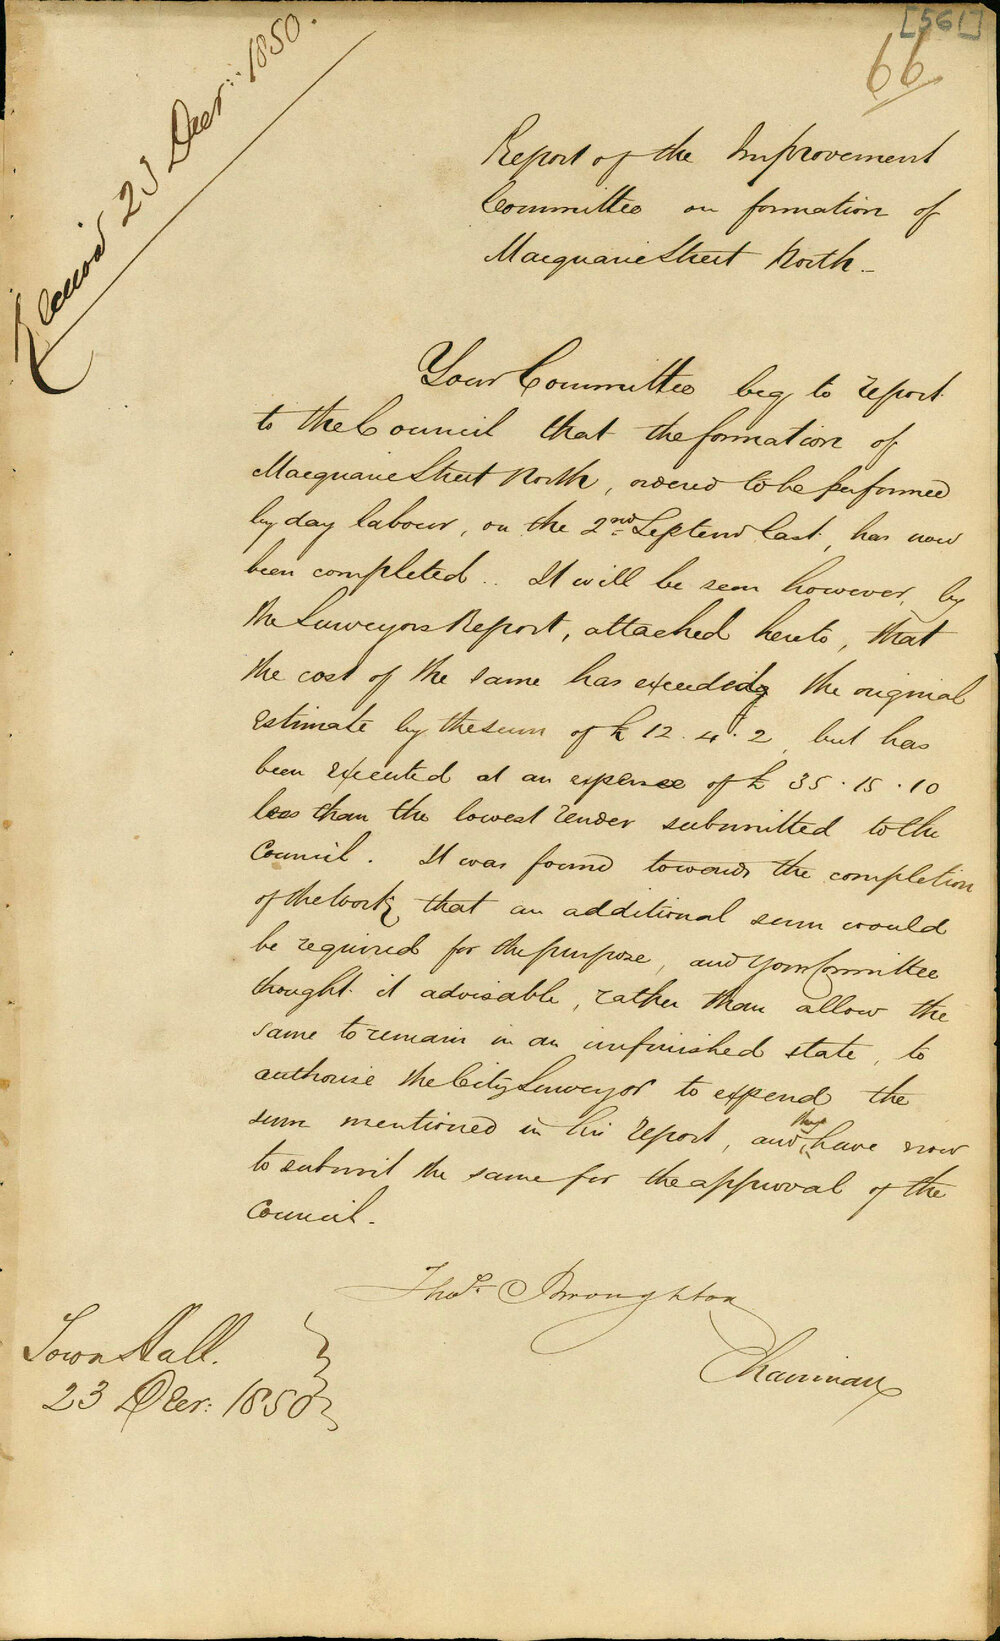 [561]
66
Received 23 Decr: 1850.
Report of the Improvement
Committee on formation of
Macquarie Street North -
Your Committee beg to report
to the Council that the formation of
Macquarie Street North, ordered to be performed
by day labour, on the 2nd Septemr last, has now
been completed.. It will be seen however, by
the Surveyors Report, attached hereto, that
the cost of the same has exceeded the original
estimate by the sum of £12.4.2, but has
been executed at an expense of £35.15.10
less than the lowest Tender submitted to the
Council. It was found towards the completion
of the work, that an additional sum would
be required for the purpose, and your Committee
thought it advisable, rather than allow the
same to remain in an unfinished state, to
authorise the City Surveyor to expend the
sum mentioned in his report, and they have now
to submit the same for the approval of the
Council.
Thos. Broughton
Chairman
Town Hall.
23 Decr: 1850